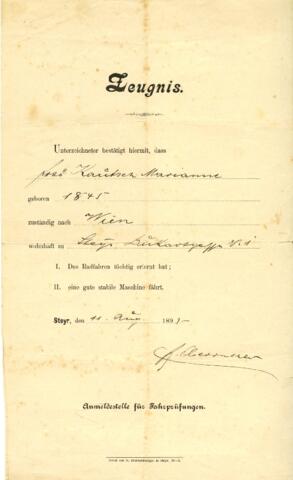 Zeugnis.
Unterzeichneter bestätigt hiermit, dass
Kautsch Marianne
geboren 1845
zuständig nach Wien
wohnhaft zu Steyr
I. Das Radfahren tüchtig erlernt hat;
II. eine gute stabile Maschine fährt.
Steyr, den 11. Aug. 189
Anmeldestelle für Fahrprüfungen.